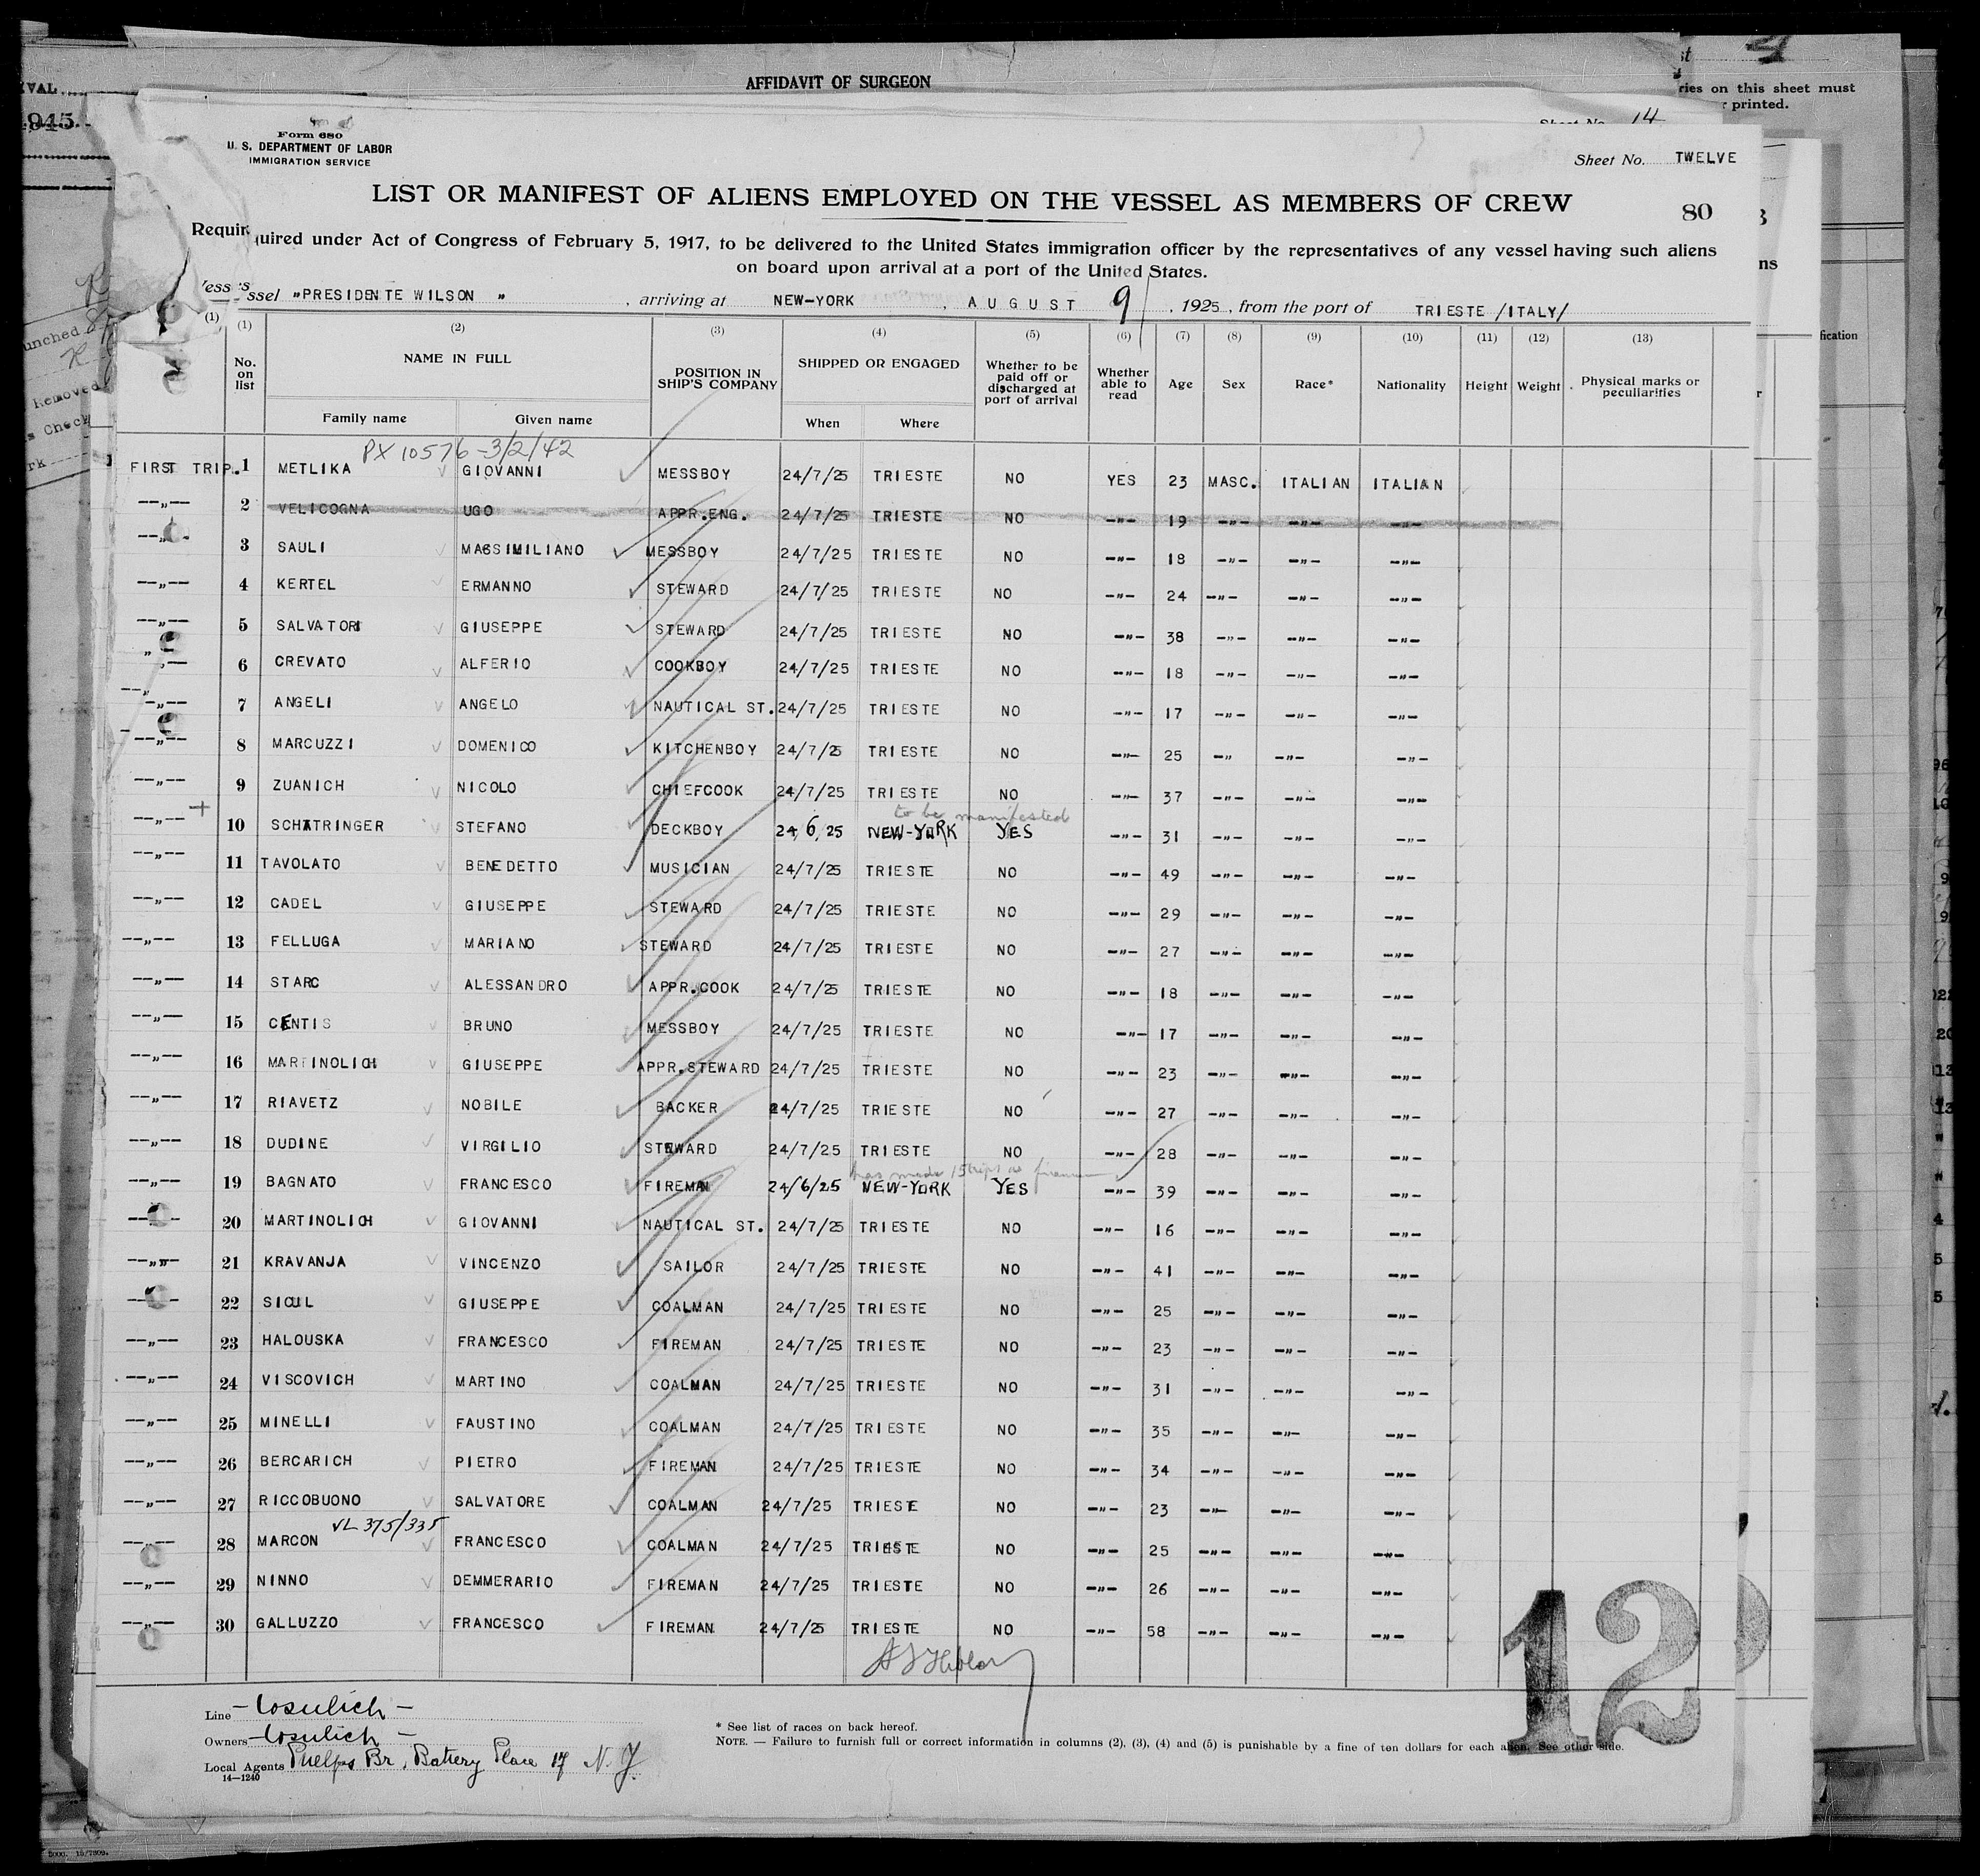 AFFIDAVIT OF SURGEON
ries on this sheet must
printed.
14
Form 680
U. S. DEPARTMENT OF LABOR
IMMIGRATION SERVICE
Sheet No. TWELVE
LIST OR MANIFEST OF ALIENS EMPLOYED ON THE VESSEL AS MEMBERS OF CREW
80
Requir uired under Act of Congress of February 5, 1917, to be delivered to the United States immigration officer by the representatives of any vessel having such aliens
on board upon arrival at a port of the United States.
ssel "PRESIDENTE WILSON ", arriving at NEW-YORK, AUGUST 9, 1925, from the port of TRIESTE /ITALY/
(1) (1) (2) (3) (4) (5) (6) (7) (8) (9) (10) (11) (12) (13)
No. on list NAME IN FULL POSITION IN SHIP'S COMPANY SHIPPED OR ENGAGED Whether to be paid off or discharged at port of arrival Whether able to read Age Sex Race* Nationality Height Weight Physical marks or peculiarities
Family name Given name When Where
PX 10576-3/2/42
FIRST TRIP. 1 METLIKA GIOVANNI MESSBOY 24/7/25 TRIESTE NO YES 23 MASC. ITALIAN ITALIAN
--"-- 2 VELICOGNA UGO APPR.ENG. 24/7/25 TRIESTE NO --"- 19 --"- --"- --"-
--"- 3 SAULI MASSIMILIANO MESSBOY 24/7/25 TRIESTE NO --"- 18 --"- --"- --"-
--"-- 4 KERTEL ERMANNO STEWARD 24/7/25 TRIESTE NO --"- 24 --"- --"- --"-
--"-- 5 SALVATORI GIUSEPPE STEWARD 24/7/25 TRIESTE NO --"- 38 --"- --"- --"-
"-- 6 CREVATO ALFERIO COOKBOY 24/7/25 TRIESTE NO --"- 18 --"- --"- --"-
--"-- 7 ANGELI ANGELO NAUTICAL ST. 24/7/25 TRIESTE NO --"- 17 --"- --"- --"-
--"-- 8 MARCUZZI DOMENICO KITCHENBOY 24/7/25 TRIESTE NO --"- 25 --" --"- --"-
--"-- 9 ZUANICH NICOLO CHIEFCOOK 24/7/25 TRIESTE NO --"- 37 --"- --"- --"-
to be manifested
--"-- + 10 SCHATRINGER STEFANO DECKBOY 24 6, 25 NEW-YORK YES --"- 31 --"- --"- --"-
--"-- 11 TAVOLATO BENEDETTO MUSICIAN 24/7/25 TRIESTE NO --"- 49 --"- --"- --"-
--"-- 12 CADEL GIUSEPPE STEWARD 24/7/25 TRIESTE NO --"- 29 --"- --"- --"-
--"-- 13 FELLUGA MARIANO STEWARD 24/7/25 TRIESTE NO --"- 27 --"- --"- --"-
--"-- 14 STARC ALESSANDRO APPR.COOK 24/7/25 TRIESTE NO --"- 18 --"- --"- --"-
--"-- 15 CENTIS BRUNO MESSBOY 24/7/25 TRIESTE NO --"- 17 --"- --"- --"-
--"-- 16 MARTINOLICH GIUSEPPE APPR.STEWARD 24/7/25 TRIESTE NO --"- 23 --"- --"- --"-
--"-- 17 RIAVETZ NOBILE BACKER 24/7/25 TRIESTE NO --"- 27 --"- --"- --"-
--"-- 18 DUDINE VIRGILIO STEWARD 24/7/25 TRIESTE NO --"- 28 --"- --"- --"-
has made 1 5 trips as fireman
--"-- 19 BAGNATO FRANCESCO FIREMAN 24/6/25 NEW-YORK YES --"- 39 --"- --"- --"-
20 MARTINOLICH GIOVANNI NAUTICAL ST. 24/7/25 TRIESTE NO --"- 16 --"- --"- --"-
--"-- 21 KRAVANJA VINCENZO SAILOR 24/7/25 TRIESTE NO --"- 41 --"- --"- --"-
22 SICUL GIUSEPPE COALMAN 24/7/25 TRIESTE NO --"- 25 --"- --"- --"-
--"-- 23 HALOUSKA FRANCESCO FIREMAN 24/7/25 TRIESTE NO --"- 23 --"- --"- --"-
--"-- 24 VISCOVICH MARTINO COALMAN 24/7/25 TRIESTE NO --"- 31 --"- --"- --"-
--"-- 25 MINELLI FAUSTINO COALMAN 24/7/25 TRIESTE NO --"- 35 --"- --"- --"-
--"-- 26 BERCARICH PIETRO FIREMAN 24/7/25 TRIESTE NO --"- 34 --"- --"- --"-
--"-- 27 RICCOBUONO SALVATORE COALMAN 24/7/25 TRIESTE NO --"- 23 --"- --"- --"-
VL 375/335
--"-- 28 MARCON FRANCESCO COALMAN 24/7/25 TRIESTE NO --"- 25 --"- --"- --"-
--"-- 29 NINNO DEMMERARIO FIREMAN 24/7/25 TRIESTE NO --"- 26 --"- --"- --"-
--"-- 30 GALLUZZO FRANCESCO FIREMAN 24/7/25 TRIESTE NO --"- 58 --"- --"- --"-
12
Line - Cosulich -
Owners - Cosulich -
Local Agents Phelps Br, Battery Place 17 N.Y.
14—1240
* See list of races on back hereof.
NOTE. — Failure to furnish full or correct information in columns (2), (3), (4) and (5) is punishable by a fine of ten dollars for each alien. See other side.